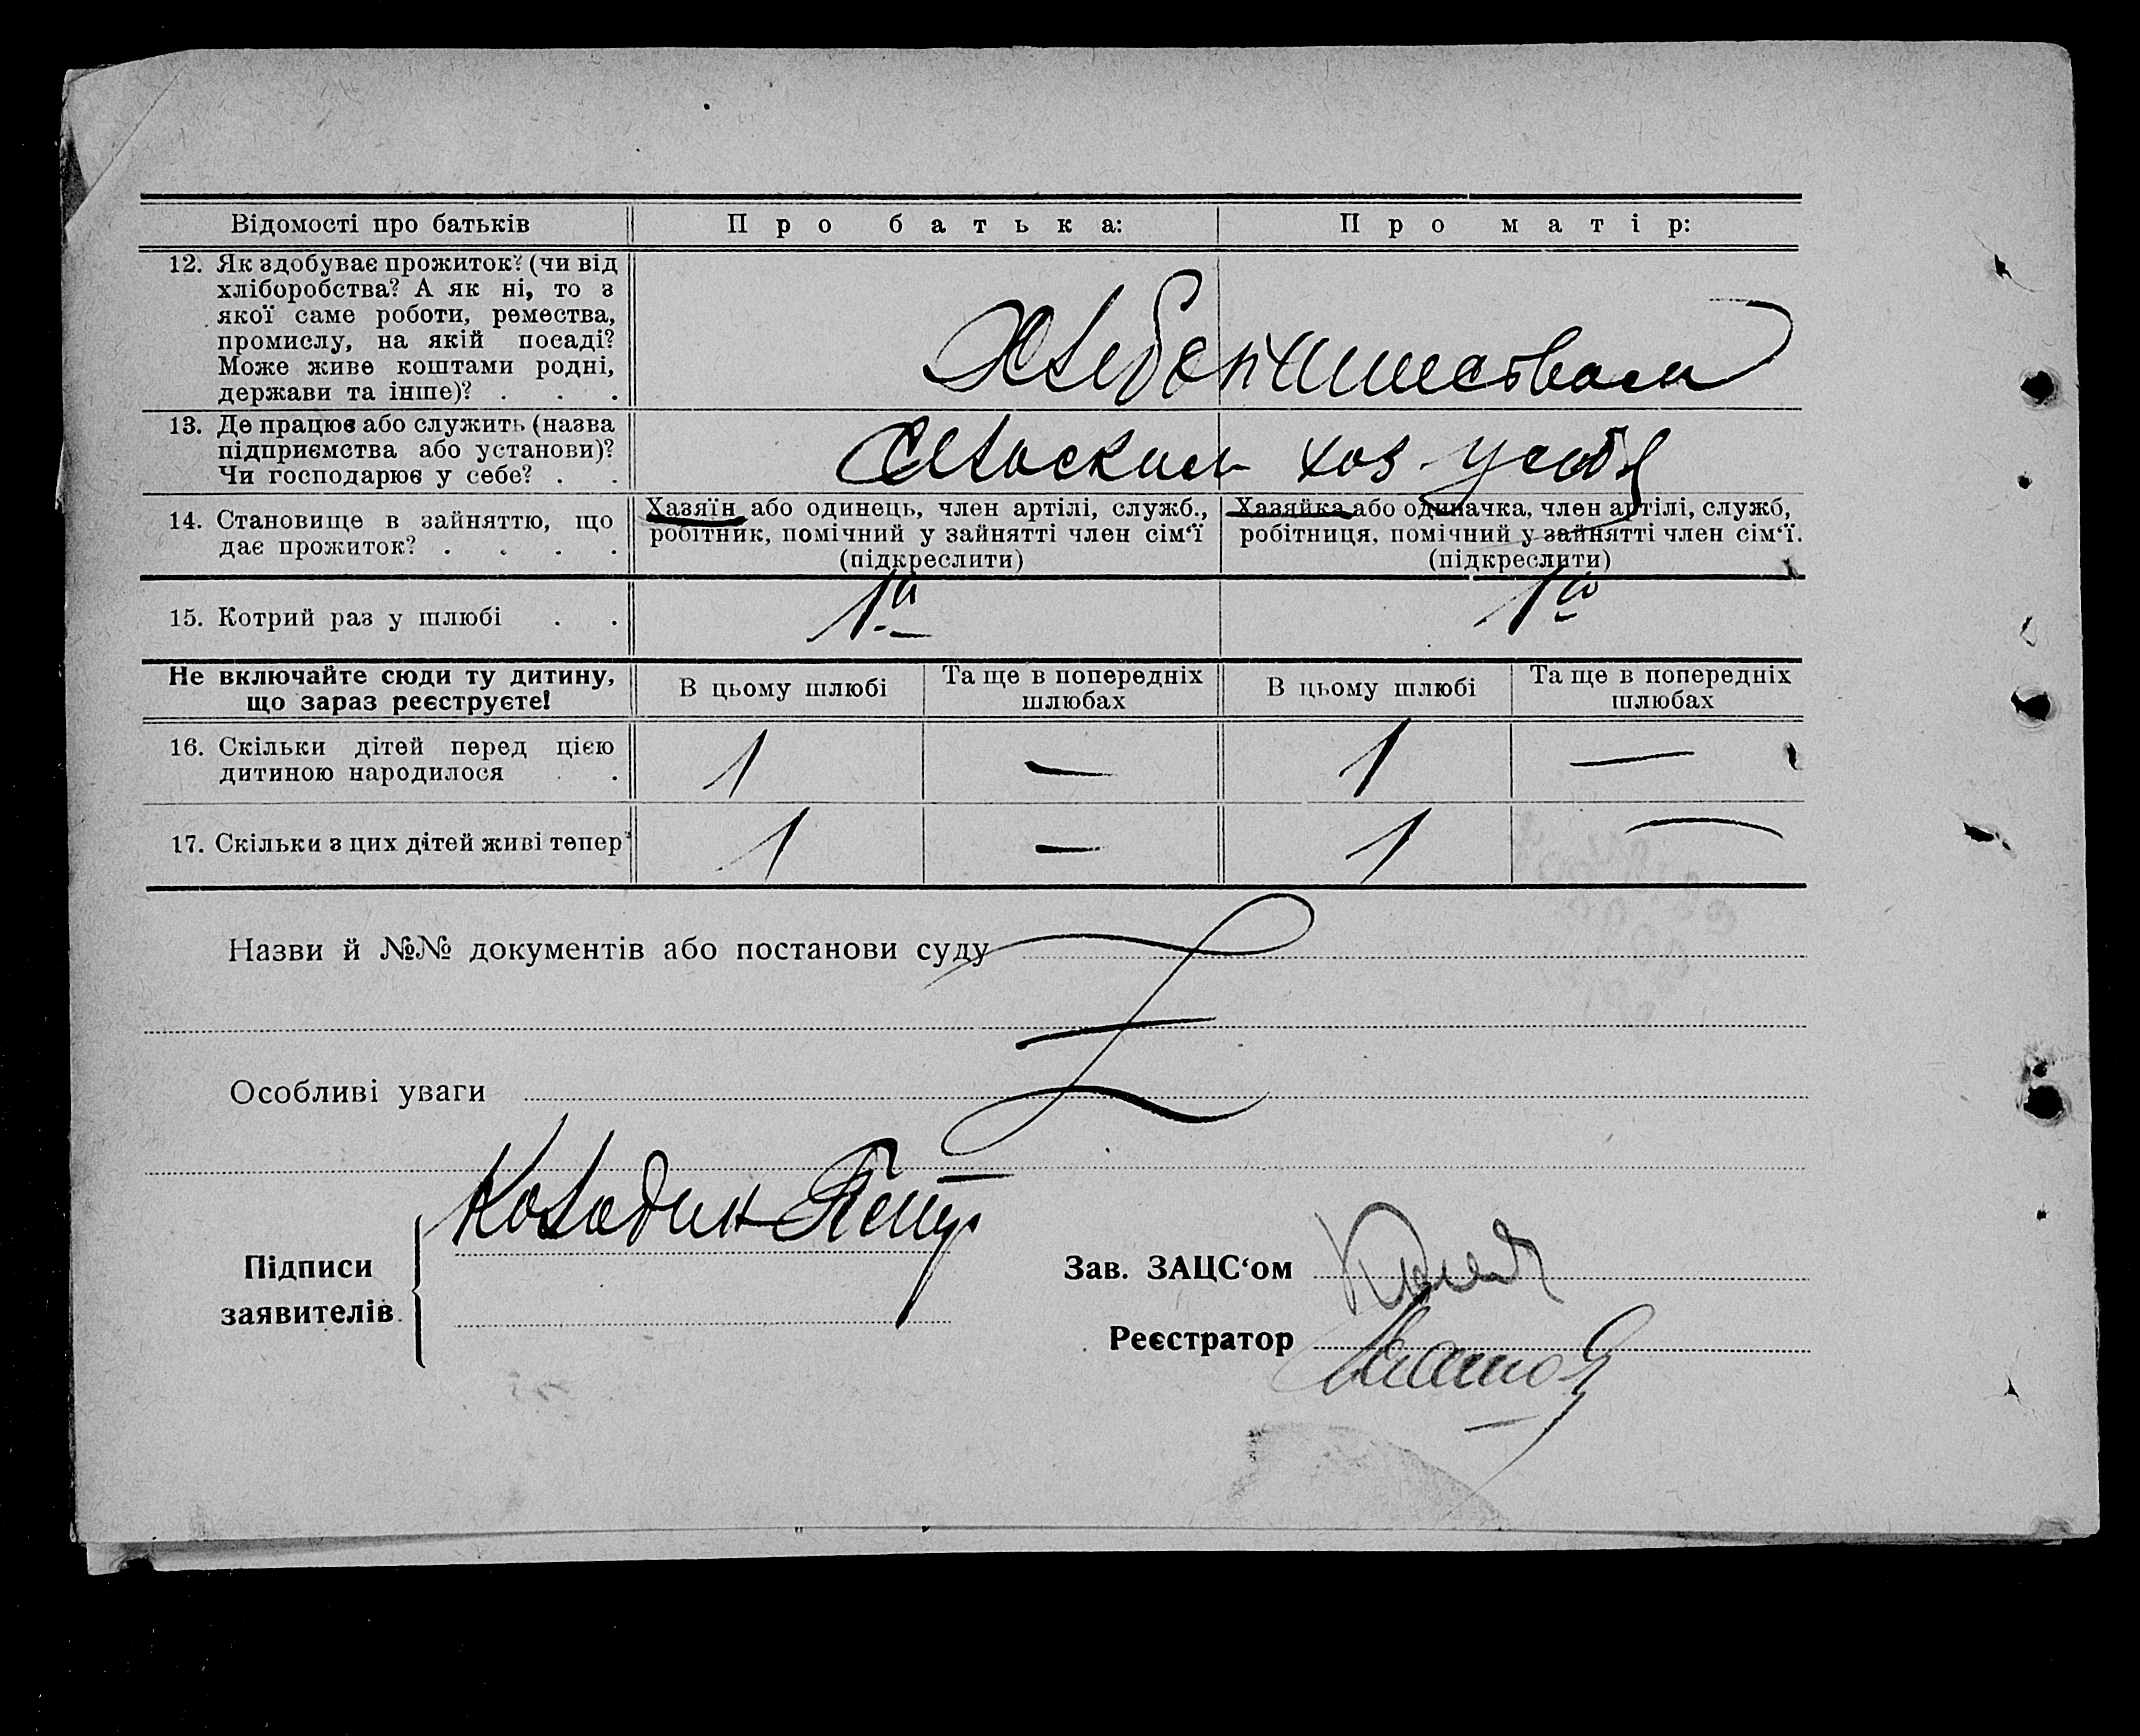 Відомості про батьків Про батька: Про матір:
12. Як здобуває прожиток? (чи від
хліборобства? А як ні, то з
якої саме роботи, ремества,
промислу, на якій посаді?
Може живе коштами родні,
держави та інше)? . . .
Хлебопашеством
13. Де працює або служить (назва
підприємства або установи)?
Чи господарює у себе? . .
Сельским хоз. у себя
14. Становище в зайняттю, що
дає прожиток? . . . .
Хазяїн або одинець, член артілі, служб.,
робітник, помічний у зайнятті член сім‘ї
(підкреслити)
Хазяйка або одиначка, член артілі, служб,
робітниця, помічний у зайнятті член сім‘ї.
(підкреслити)
15. Котрий раз у шлюбі . . 1й 1й
Не включайте сюди ту дитину,
що зараз реєструєте!
В цьому шлюбі
Та ще в попередніх
шлюбах
В цьому шлюбі
Та ще в попередніх
шлюбах
16. Скільки дітей перед цією
дитиною народилося . .
1 — 1 —
17. Скільки з цих дітей живі тепер? 1 — 1 —
Назви й №№ документів або постанови суду
Особливі уваги
Колодин Петр
Підписи
заявителів
Зав. ЗАЦС‘ом
Реєстратор